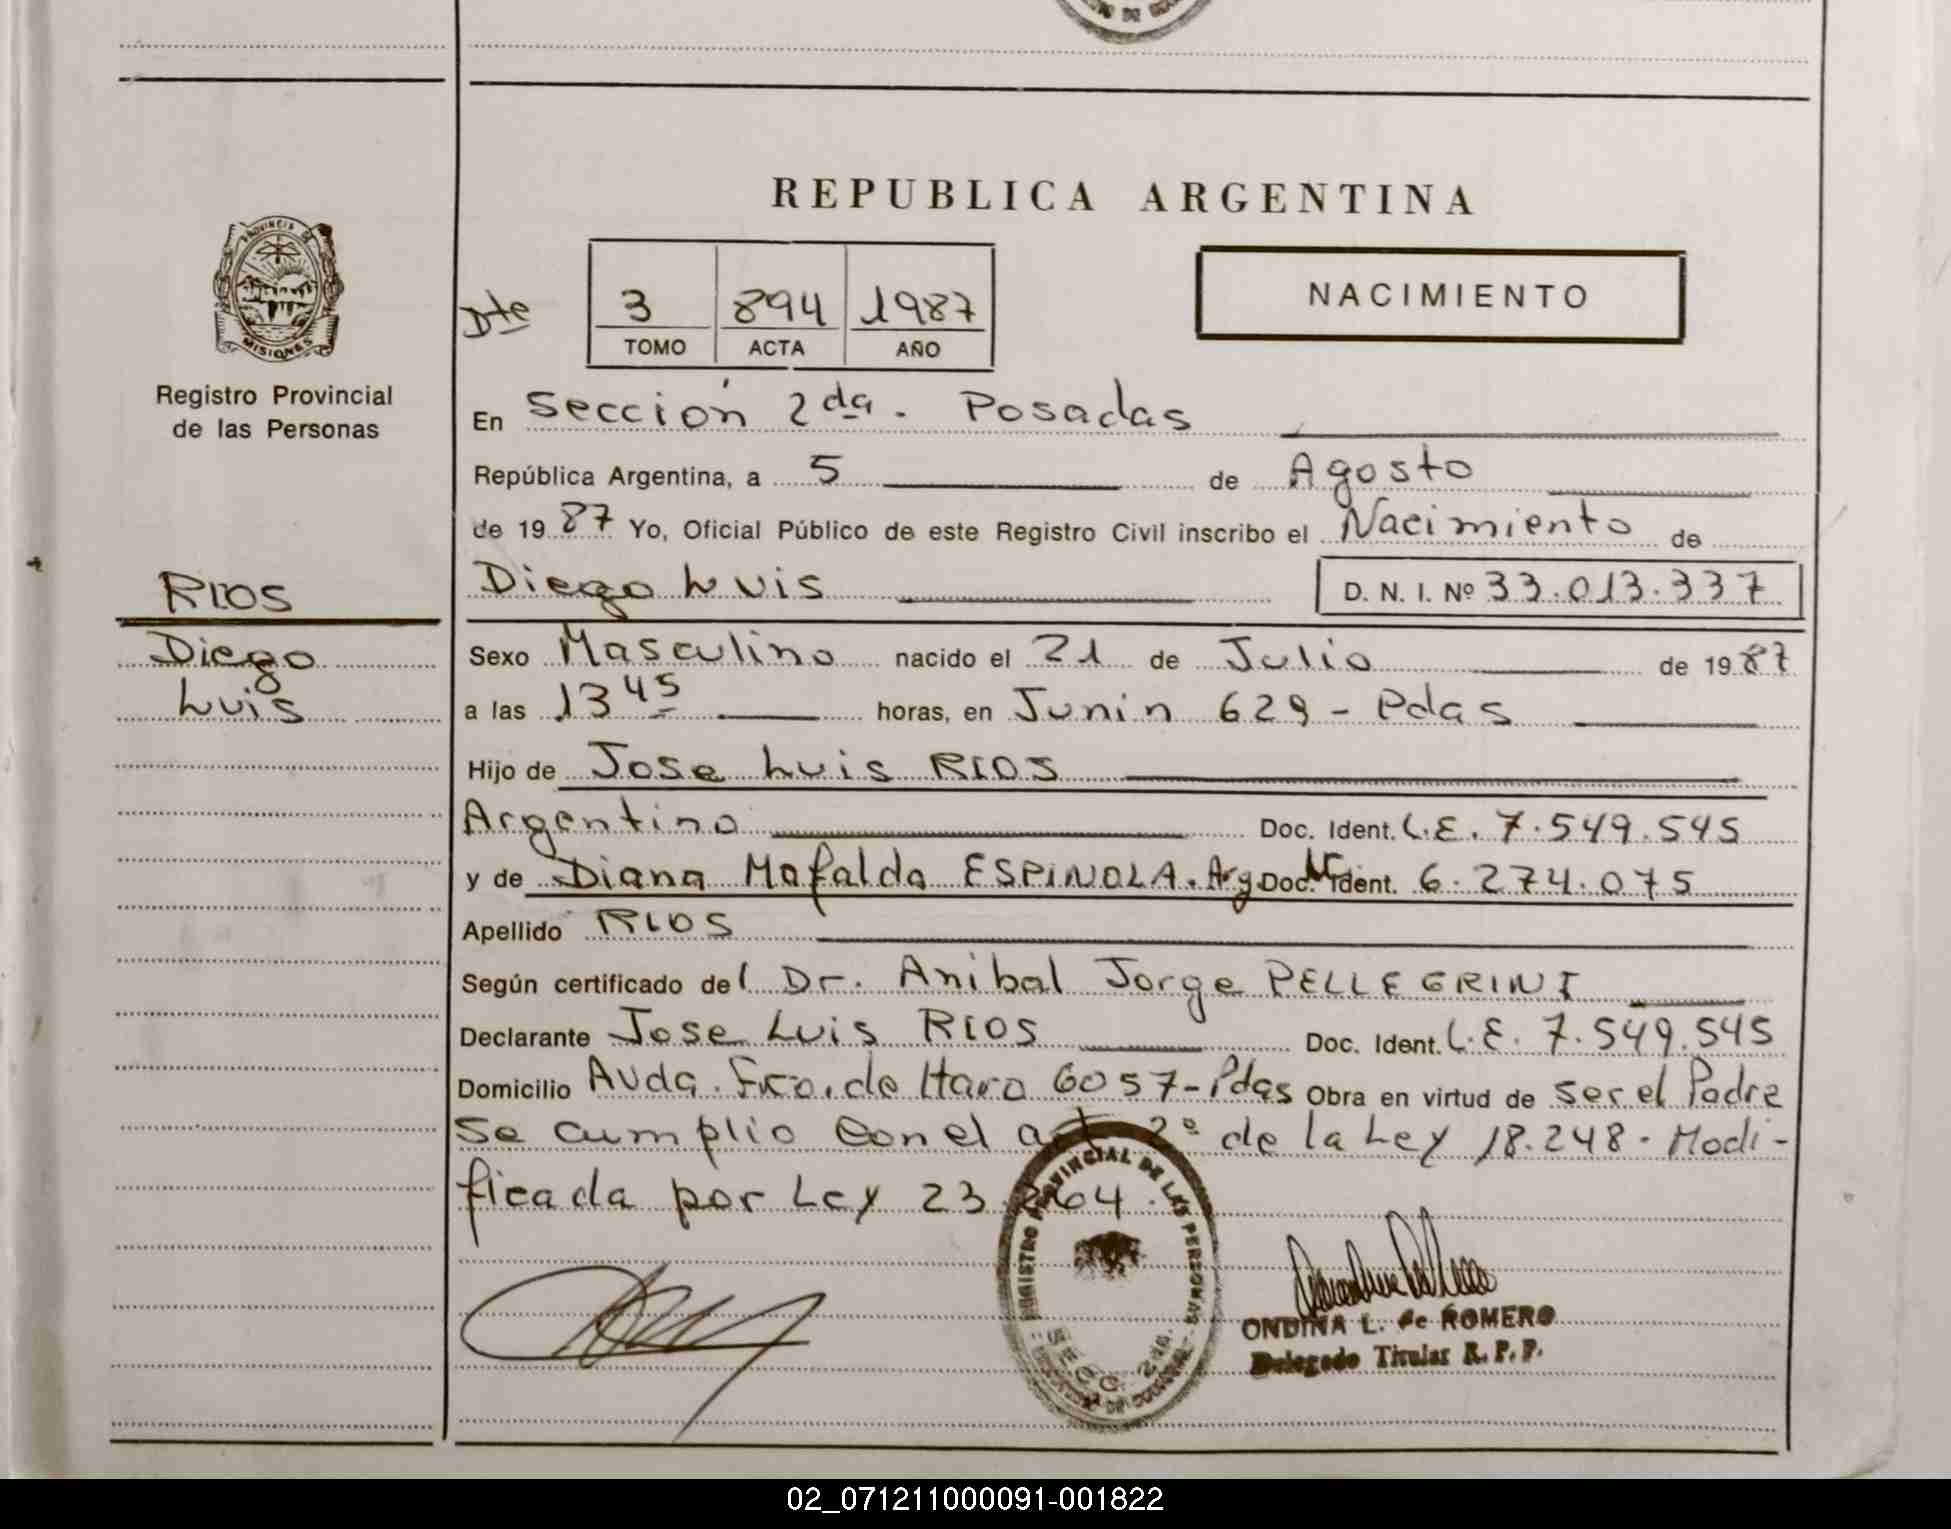 REPUBLICA ARGENTINA
PROVINCIA DE
MISIONES
Registro Provincial
de las Personas
Dte
3 894 1987
TOMO ACTA AÑO
NACIMIENTO
En Sección 2da. Posadas
República Argentina, a 5 de Agosto
de 1987 Yo, Oficial Público de este Registro Civil inscribo el Nacimiento de
RIOS
Diego Luis D. N. I. Nº 33.013.337
Diego
Luis
Sexo Masculino nacido el 21 de Julio de 1987
a las 13 45 horas, en Junin 629 - Pdas
Hijo de Jose Luis RIOS
Argentino Doc. Ident. L.E. 7.549.545
y de Diana Mafalda ESPINOLA. Arg Doc. Ident. 6.274.075
Apellido RIOS
Según certificado del Dr. Anibal Jorge PELLEGRINI
Declarante Jose Luis RIOS Doc. Ident. L.E. 7.549.545
Domicilio Avda. Fco. de Haro 6057 - Pdas Obra en virtud de ser el Padre
Se cumplio con el art. 2º de la Ley 18.248. Modi-
ficada por Ley 23.264.
REGISTRO PROVINCIAL DE LAS PERSONAS
SECC. 2da.
ONDINA L. de ROMERO
Delegado Titular R. P. P.
02_071211000091-001822